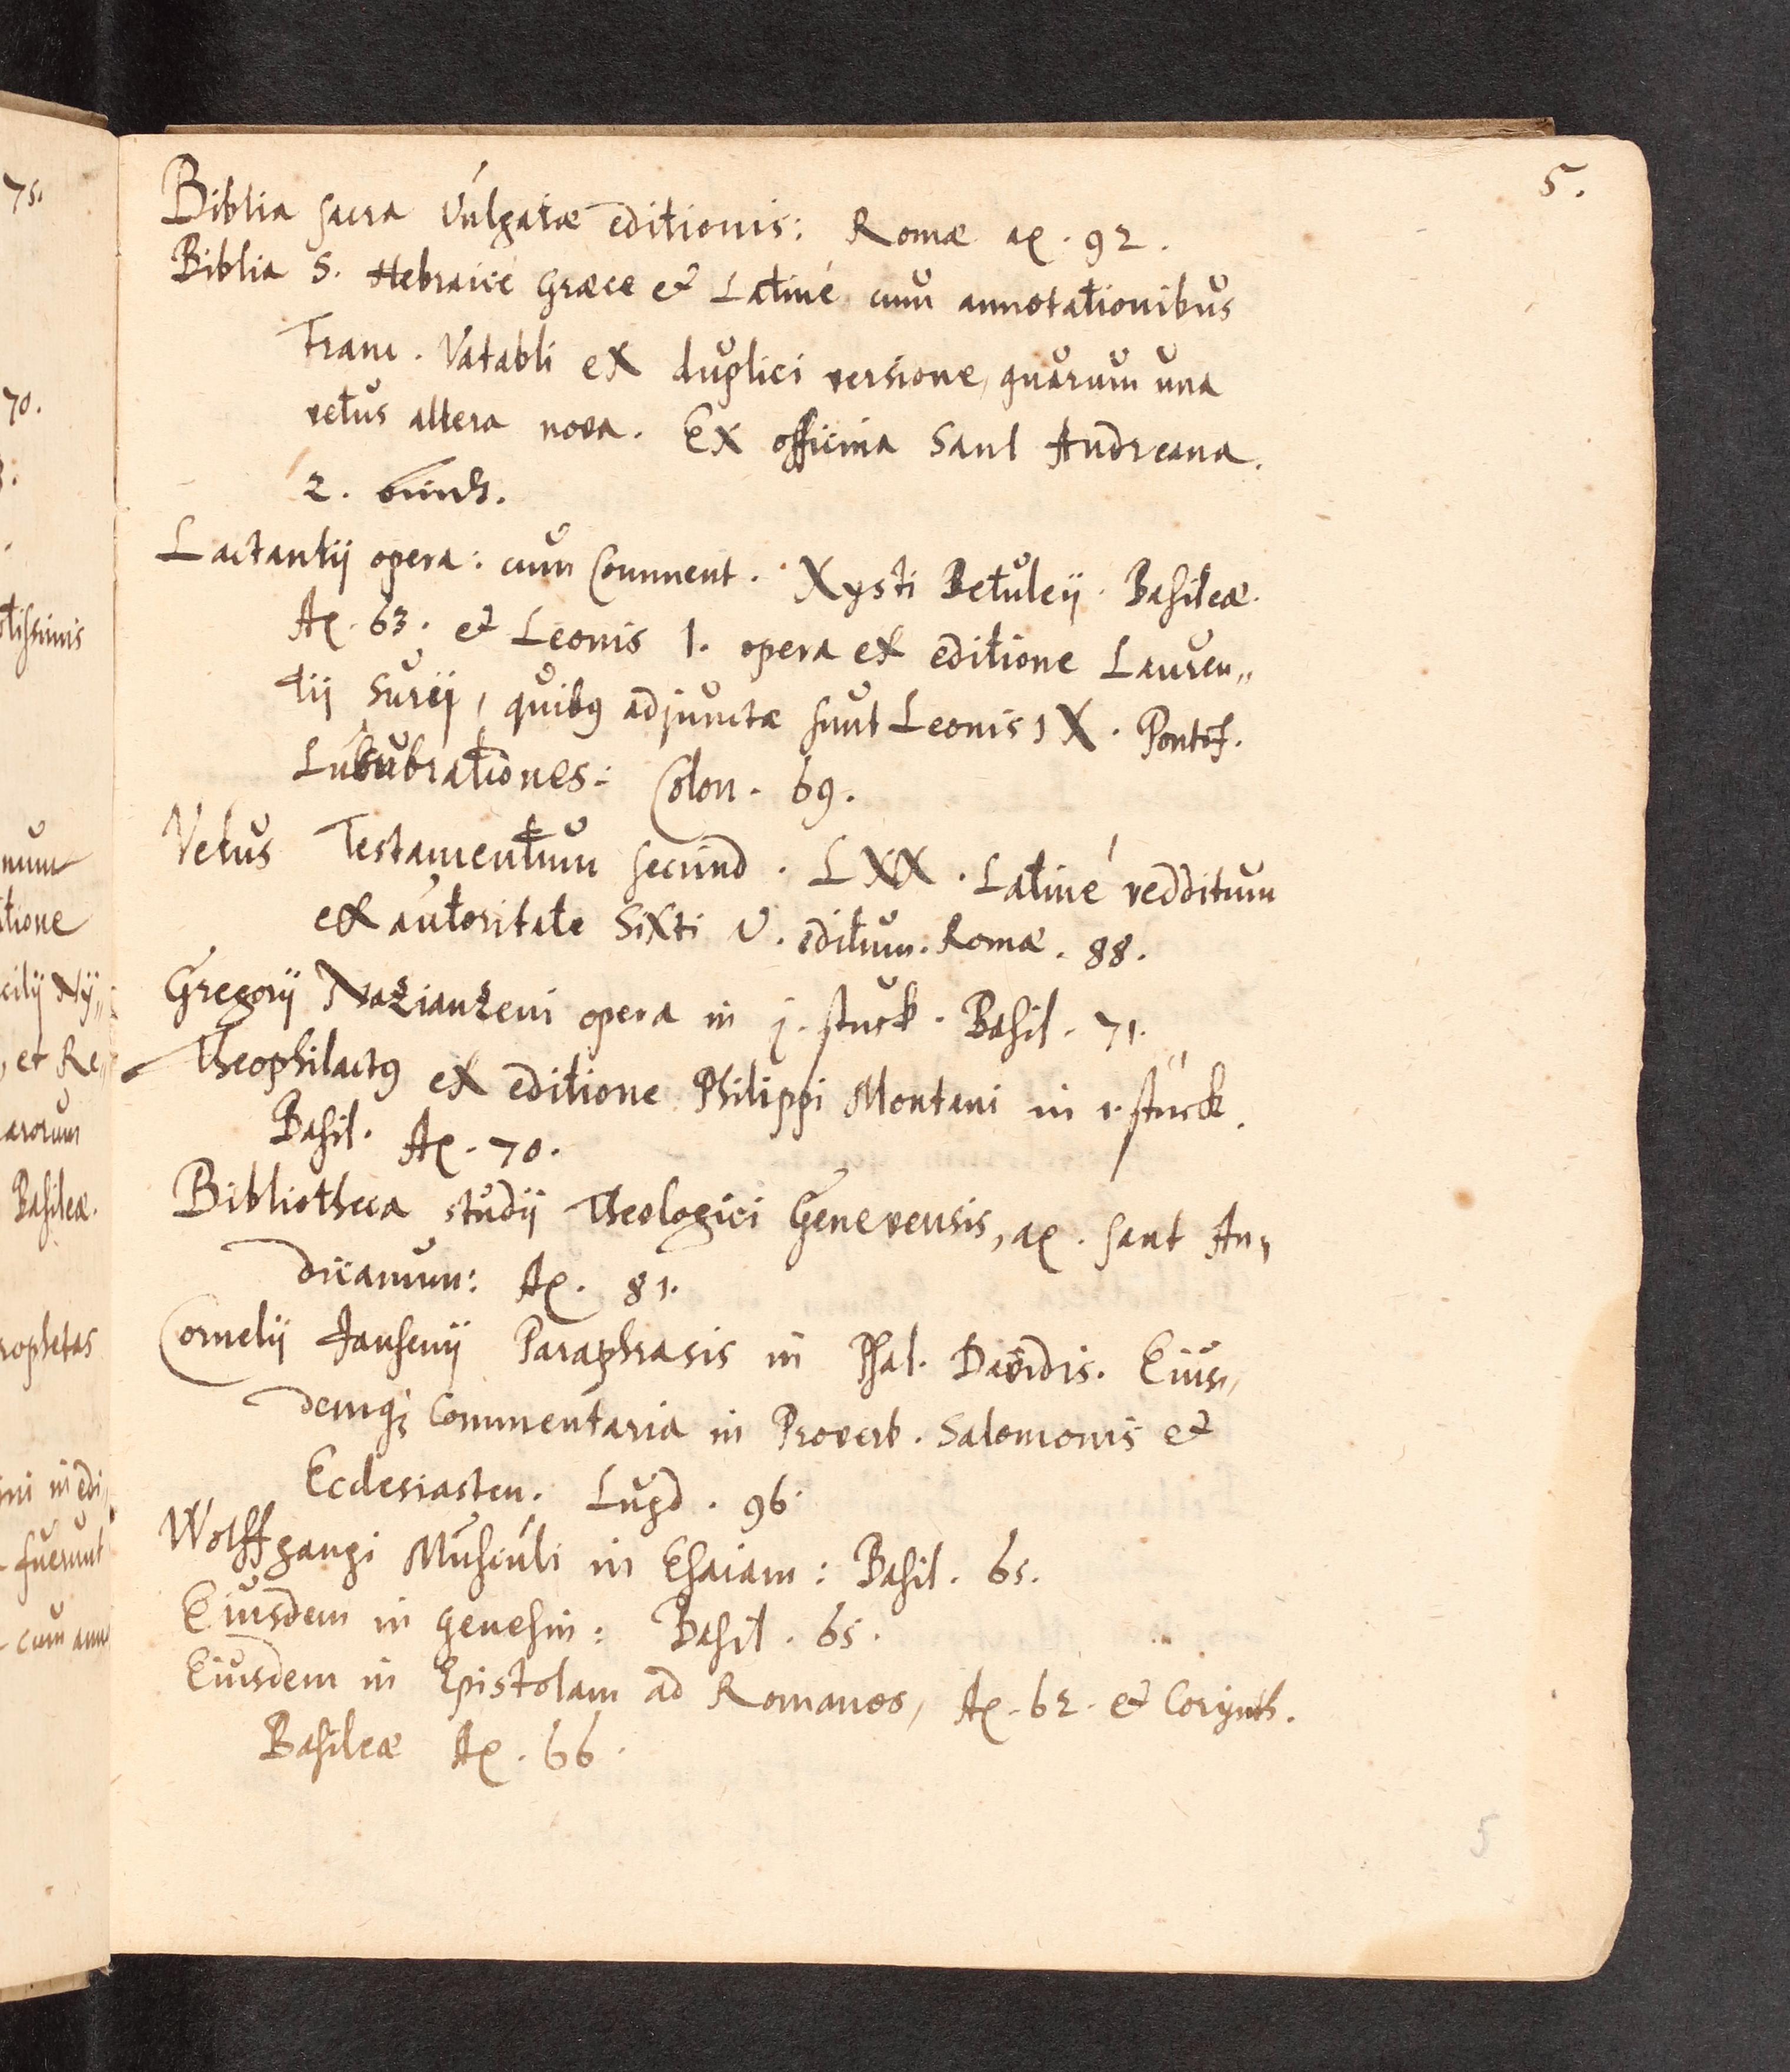 5.
Biblia sacra Vulgatæ editionis: Romæ aꝝ. 92.
Biblia S. Hebraicè Græce et Latinè cum annotationibus
Franc. Vatabli ex duplici versione, quarum una
vetus altera nova. Ex officina Sant Andreana.
2.
Lactantij opera: cum Comment. Xysti Betuleij. Basileæ.
Aꝝ. 63. et Leonis 1. opera ex editione Lauren„
tij Surij, quibꝰ adjunctæ sunt Leonis IX. Pontif.
Lububrationes: Colon. 69.
Vetus Testamentum secund. LXX. Latinè redditum
ex autoritate Sixti V. editum. Romæ. 88.
Gregorij Nazianzeni opera in j. stuck. Basil. 71.
Theophilactꝰ ex editione Philippi Montani in 1. stuck.
Basil. Aꝝ. 70.
Bibliotheca studij Theologici Genevensis, aꝝ. sant An„
dreanum: Aꝝ. 81.
Cornelij Jansenij Paraphrasis in Psal. Davidis. Eius„
demq; Commentaria in Proverb. Salomonis et
Ecclesiasten. Lugd. 96.
Wolffgangi Musculi in Esaiam: Basil. 65.
Eiusdem in genesin: Basil. 65.
Eiusdem in Epistolam ad Romanos, Aꝝ. 62. et Corynth.
Basileæ Aꝝ. 66.
5
75.
70.
num
et Re„
Basileæ.
fuerunt